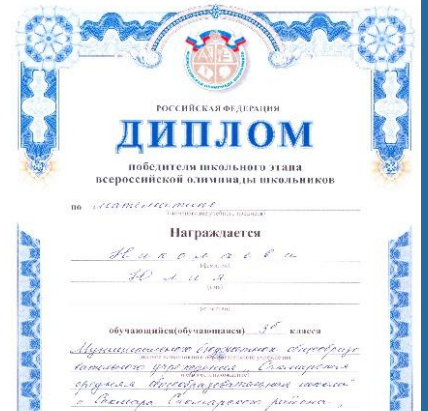 РОССИЙСКАЯ ФЕДЕРАЦИЯ
ДИПЛОМ
победителя школьного этапа
всероссийской олимпиады школьников
по математике
Награждается
Николаева
Юлия
обучающийся(обучающаяся) 3б класса
Муниципального бюджетного общеобразо
вательного учреждения
средняя общеобразовательная школа
района,